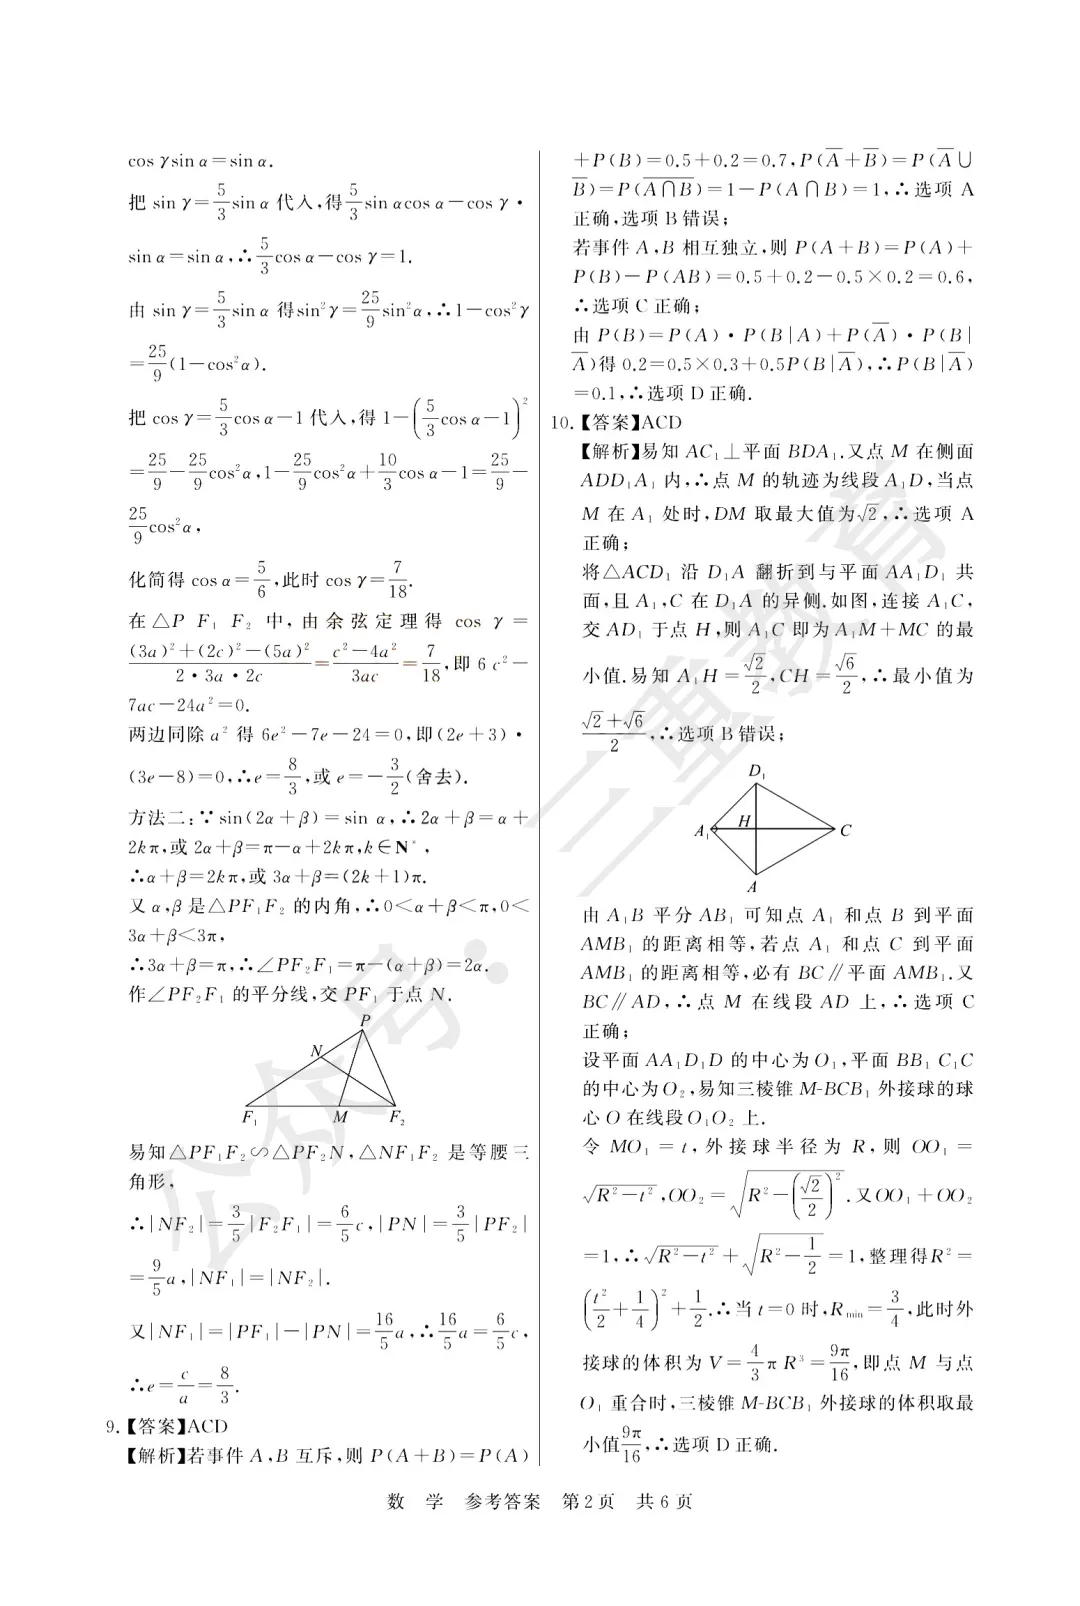 cos γsin α=sin α.
把 sin γ=5/3 sin α 代入,得 5/3 sin αcos α−cos γ·
sin α=sin α,∴5/3 cos α−cos γ=1.
由 sin γ=5/3 sin α 得sin²γ=25/9 sin²α,∴1−cos²γ
=25/9(1−cos²α).
把 cos γ=5/3 cos α−1 代入,得 1−(5/3 cos α−1)²
=25/9−25/9 cos²α,1−25/9 cos²α+10/3 cos α−1=25/9−
25/9 cos²α,
化简得 cos α=5/6,此时 cos γ=7/18.
在△P F₁ F₂ 中,由余弦定理得 cos γ=
((3a)²+(2c)²−(5a)²)/(2·3a·2c)=(c²−4a²)/(3ac)=7/18,即 6c²−
7ac−24a²=0.
两边同除 a² 得 6e²−7e−24=0,即(2e+3)·
(3e−8)=0,∴e=8/3,或 e=−3/2(舍去).
方法二:∵sin(2α+β)=sin α,∴2α+β=α+
2kπ,或 2α+β=π−α+2kπ,k∈N*,
∴α+β=2kπ,或 3α+β=(2k+1)π.
又 α,β 是△PF₁F₂ 的内角,∴0<α+β<π,0<
3α+β<3π,
∴3α+β=π,∴∠PF₂F₁=π−(α+β)=2α.
作∠PF₂F₁ 的平分线,交 PF₁ 于点 N.
P
N
F₁ M F₂
易知△PF₁F₂∽△PF₂N,△NF₁F₂ 是等腰三
角形,
∴|NF₂|=3/5|F₂F₁|=6/5 c,|PN|=3/5|PF₂|
=9/5 a,|NF₁|=|NF₂|.
又|NF₁|=|PF₁|−|PN|=16/5 a,∴16/5 a=6/5 c,
∴e=c/a=8/3.
9.【答案】ACD
【解析】若事件 A,B 互斥,则 P(A+B)=P(A)
+P(B)=0.5+0.2=0.7,P(A̅+B̅)=P(A̅∪
B̅)=P(A∩B‾)=1−P(A∩B)=1,∴选项 A
正确,选项 B 错误;
若事件 A,B 相互独立,则 P(A+B)=P(A)+
P(B)−P(AB)=0.5+0.2−0.5×0.2=0.6,
∴选项 C 正确;
由 P(B)=P(A)·P(B|A)+P(A̅)·P(B|
A̅)得 0.2=0.5×0.3+0.5P(B|A̅),∴P(B|A̅)
=0.1,∴选项 D 正确.
10.【答案】ACD
【解析】易知 AC₁⊥平面 BDA₁.又点 M 在侧面
ADD₁A₁ 内,∴点 M 的轨迹为线段 A₁D,当点
M 在 A₁ 处时,DM 取最大值为√2,∴选项 A
正确;
将△ACD₁ 沿 D₁A 翻折到与平面 AA₁D₁ 共
面,且 A₁,C 在 D₁A 的异侧.如图,连接 A₁C,
交 AD₁ 于点 H,则 A₁C 即为 A₁M+MC 的最
小值.易知 A₁H=√2/2,CH=√6/2,∴最小值为
(√2+√6)/2,∴选项 B 错误;
D₁
A₁ H C
A
由 A₁B 平分 AB₁ 可知点 A₁ 和点 B 到平面
AMB₁ 的距离相等,若点 A₁ 和点 C 到平面
AMB₁ 的距离相等,必有 BC∥平面 AMB₁.又
BC∥AD,∴点 M 在线段 AD 上,∴选项 C
正确;
设平面 AA₁D₁D 的中心为 O₁,平面 BB₁C₁C
的中心为 O₂,易知三棱锥 M-BCB₁ 外接球的球
心 O 在线段 O₁O₂ 上.
令 MO₁=t,外接球半径为 R,则 OO₁=
√(R²−t²),OO₂=√(R²−(√2/2)²).又OO₁+OO₂
=1,∴√(R²−t²)+√(R²−1/2)=1,整理得R²=
(t²/2+1/4)²+1/2.∴当 t=0 时,Rmin=3/4,此时外
接球的体积为 V=4/3 πR³=9π/16,即点 M 与点
O₁ 重合时,三棱锥 M-BCB₁ 外接球的体积取最
小值 9π/16,∴选项 D 正确.
数 学 参考答案 第2页 共6页
公众号:三重教育